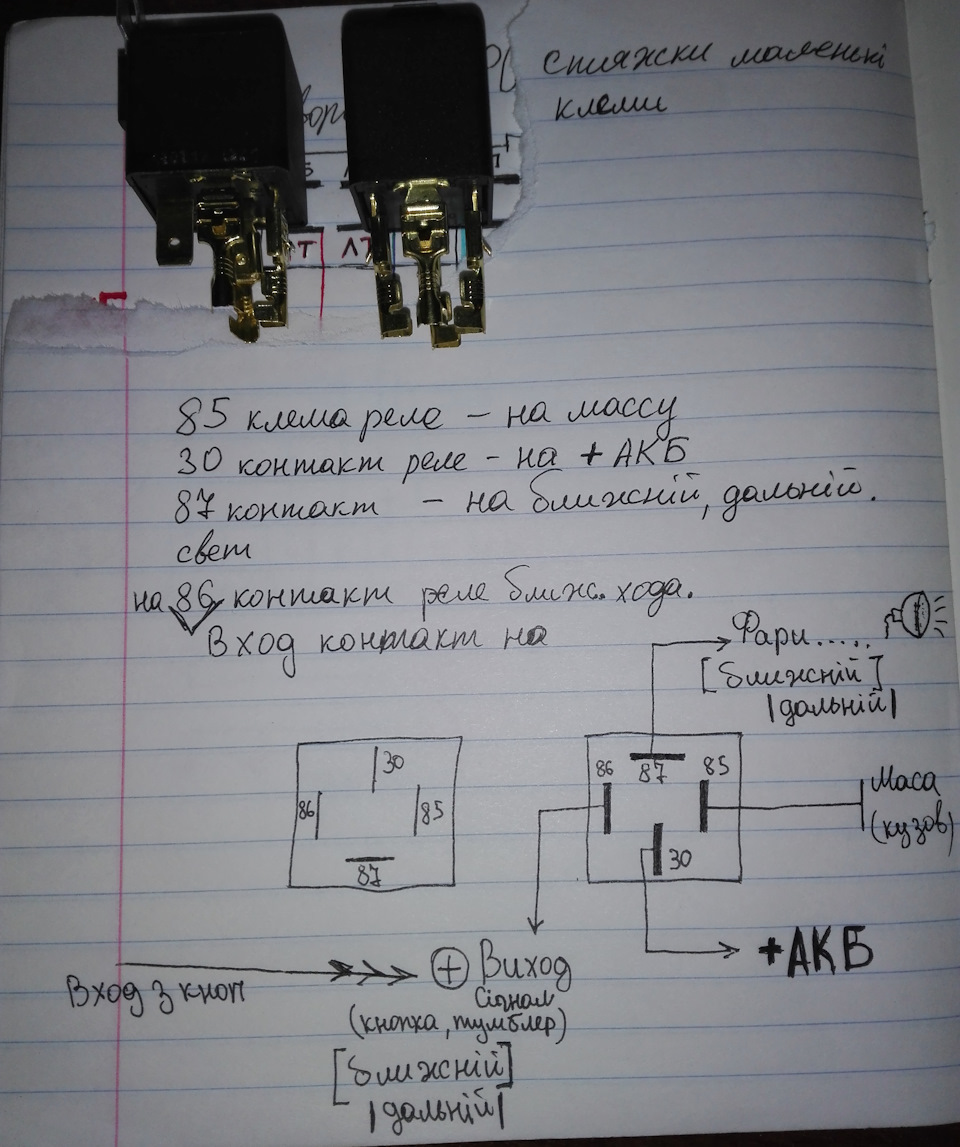 стяжки маленькі
клеми
Т
ЛТ
85 клема реле – на массу
30 контакт реле – на + АКБ
87 контакт – на ближній, дальній.
свет
на 86 контакт реле ближ. хода.
Вход контакт на
Фари.....
[ближній]
|дальній|
30
86
85
87
86
87
85
30
Маса
(кузов)
+АКБ
Вход з кноп
+ Виход
Сігнал
(кнопка, тумблер)
[ближній]
|дальній|